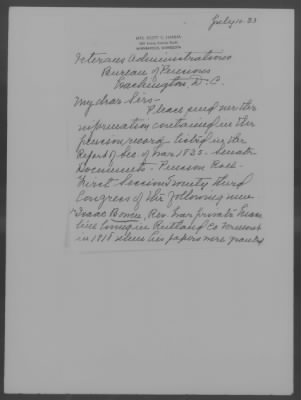 July 10 - 33
MRS. SCOTT
MINNEAPOLIS, MINNESOTA
Veterans Administration
Bureau of Pensions
Washington, D.C.
My dear Sirs -
Please send me the
information contained in the
pension record listed in the
Report of Sec. of War 1835 - Senate
Documents - Pension Roll -
First Session Twenty third
Congress of the following men -
Isaac Bowen, Rev. War private
line living in Rutland Co Vermont
in 1818 when his papers were granted